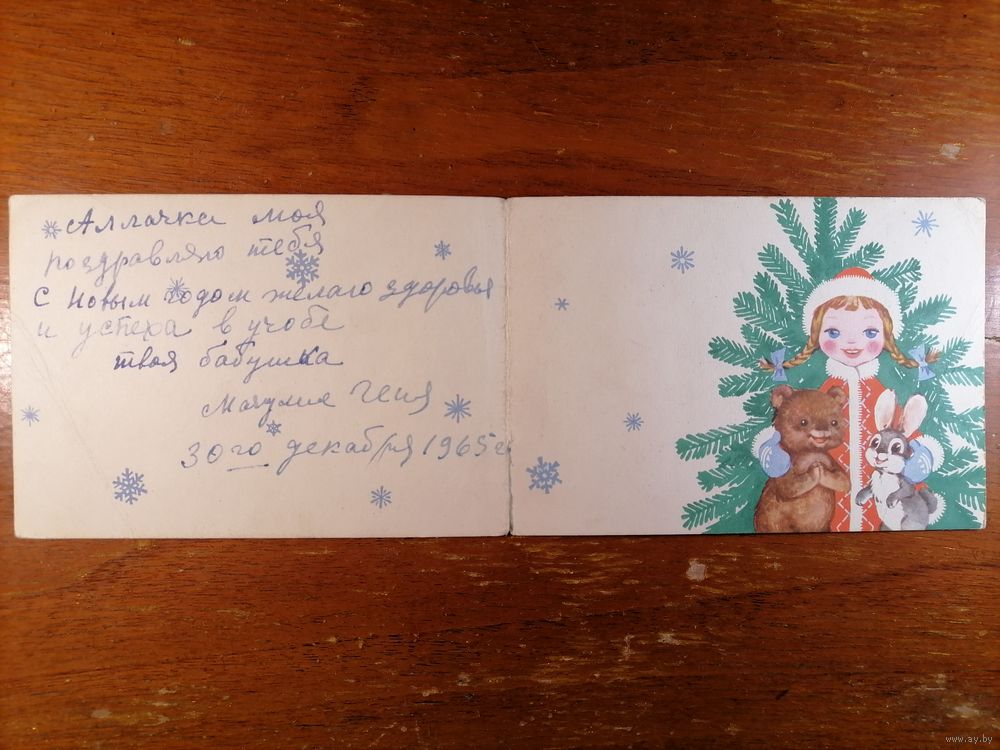 Аллачка моя
поздравляю тебя
с новым годом желаю здоровья
и успеха в учобе
твоя бабушка
Геня
30го декабря 1965г
www.ay.by